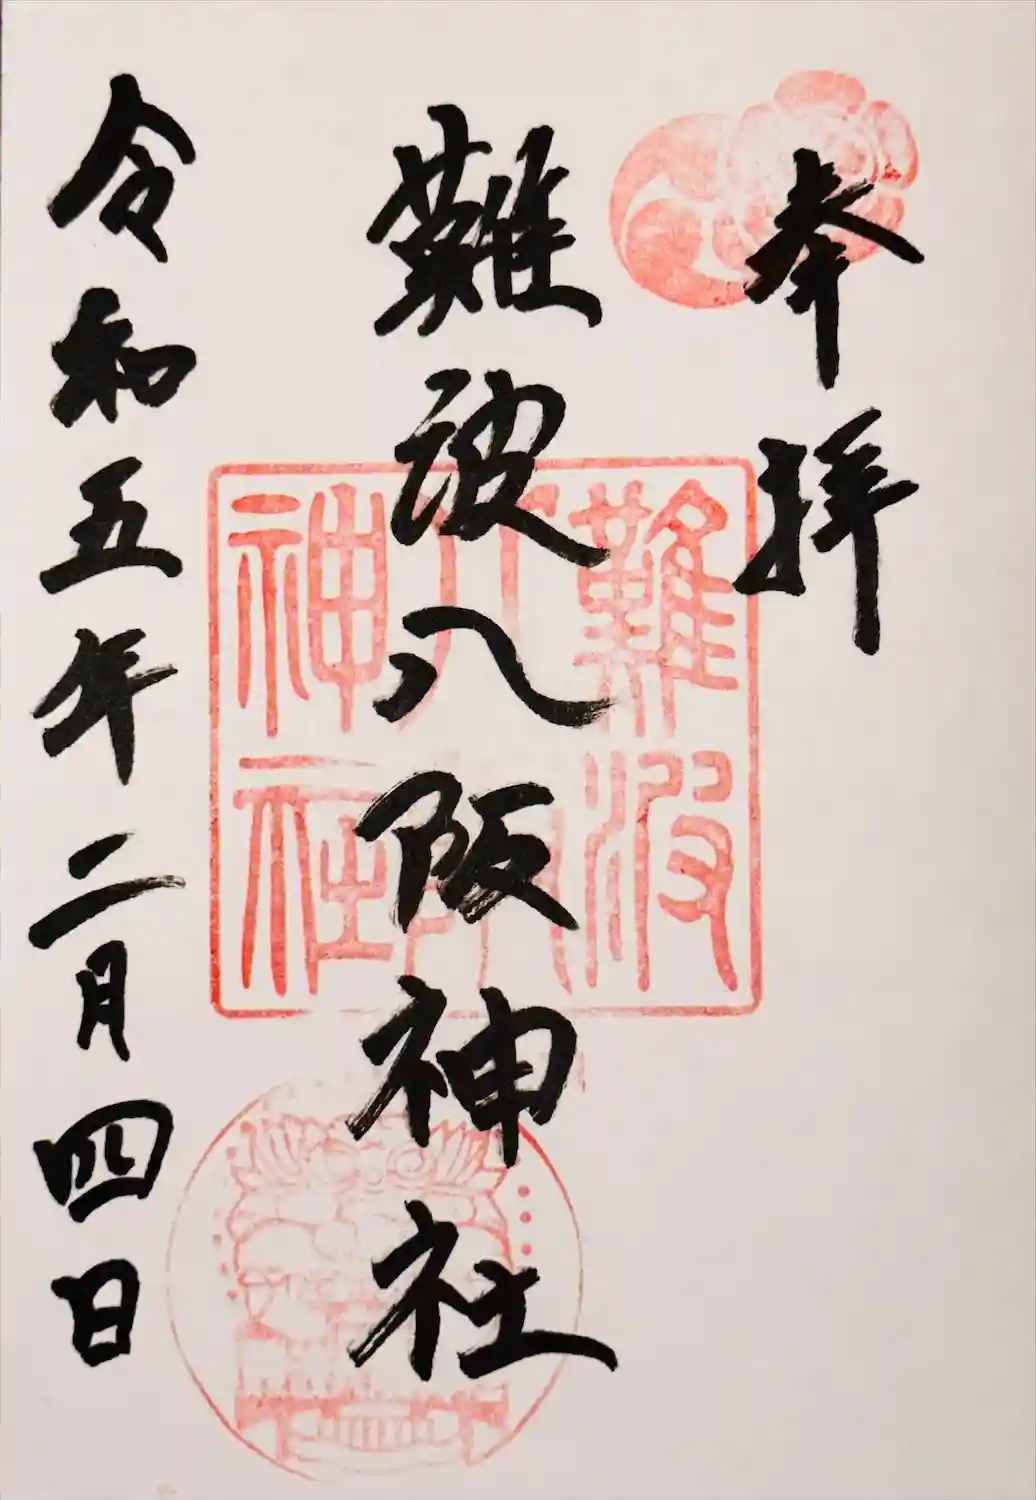 奉拝
難波八阪神社
令和五年二月四日
難波
八阪
神社